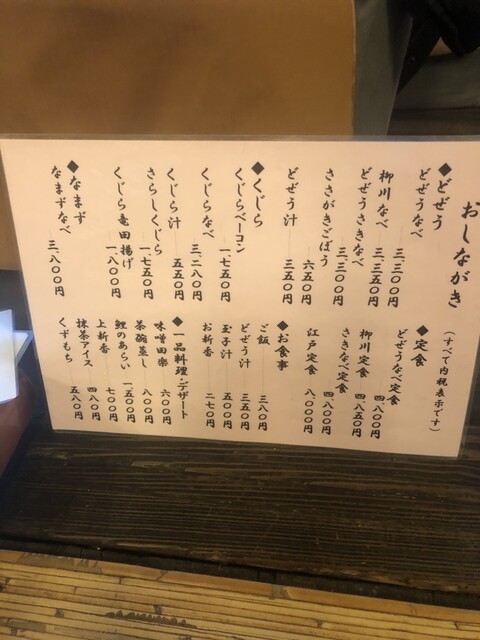 おしながき
(すべて内税表示です)
◆どぜう
どぜうなべ 三、三〇〇円
柳川なべ 三、三五〇円
どぜうさきなべ 三、三〇〇円
ささがきごぼう 六五〇円
どぜう汁 三五〇円
◆くじら
くじらベーコン 一七五〇円
くじらなべ 三、二八〇円
くじら汁 五五〇円
さらしくじら 一七五〇円
くじら竜田揚げ 一、八〇〇円
◆なまず
なまずなべ 三、八〇〇円
◆定食
どぜうなべ定食 四、八〇〇円
柳川定食 四、八五〇円
さきなべ定食 四、八〇〇円
江戸定食 八、〇〇〇円
◆お食事
ご飯 三八〇円
どぜう汁 三五〇円
玉子汁 五〇〇円
お新香 二七〇円
◆一品料理・デザート
味噌田楽 六〇〇円
茶碗蒸し 八〇〇円
鯉のあらい 一、五〇〇円
上新香 七〇〇円
抹茶アイス 四八〇円
くずもち 五八〇円